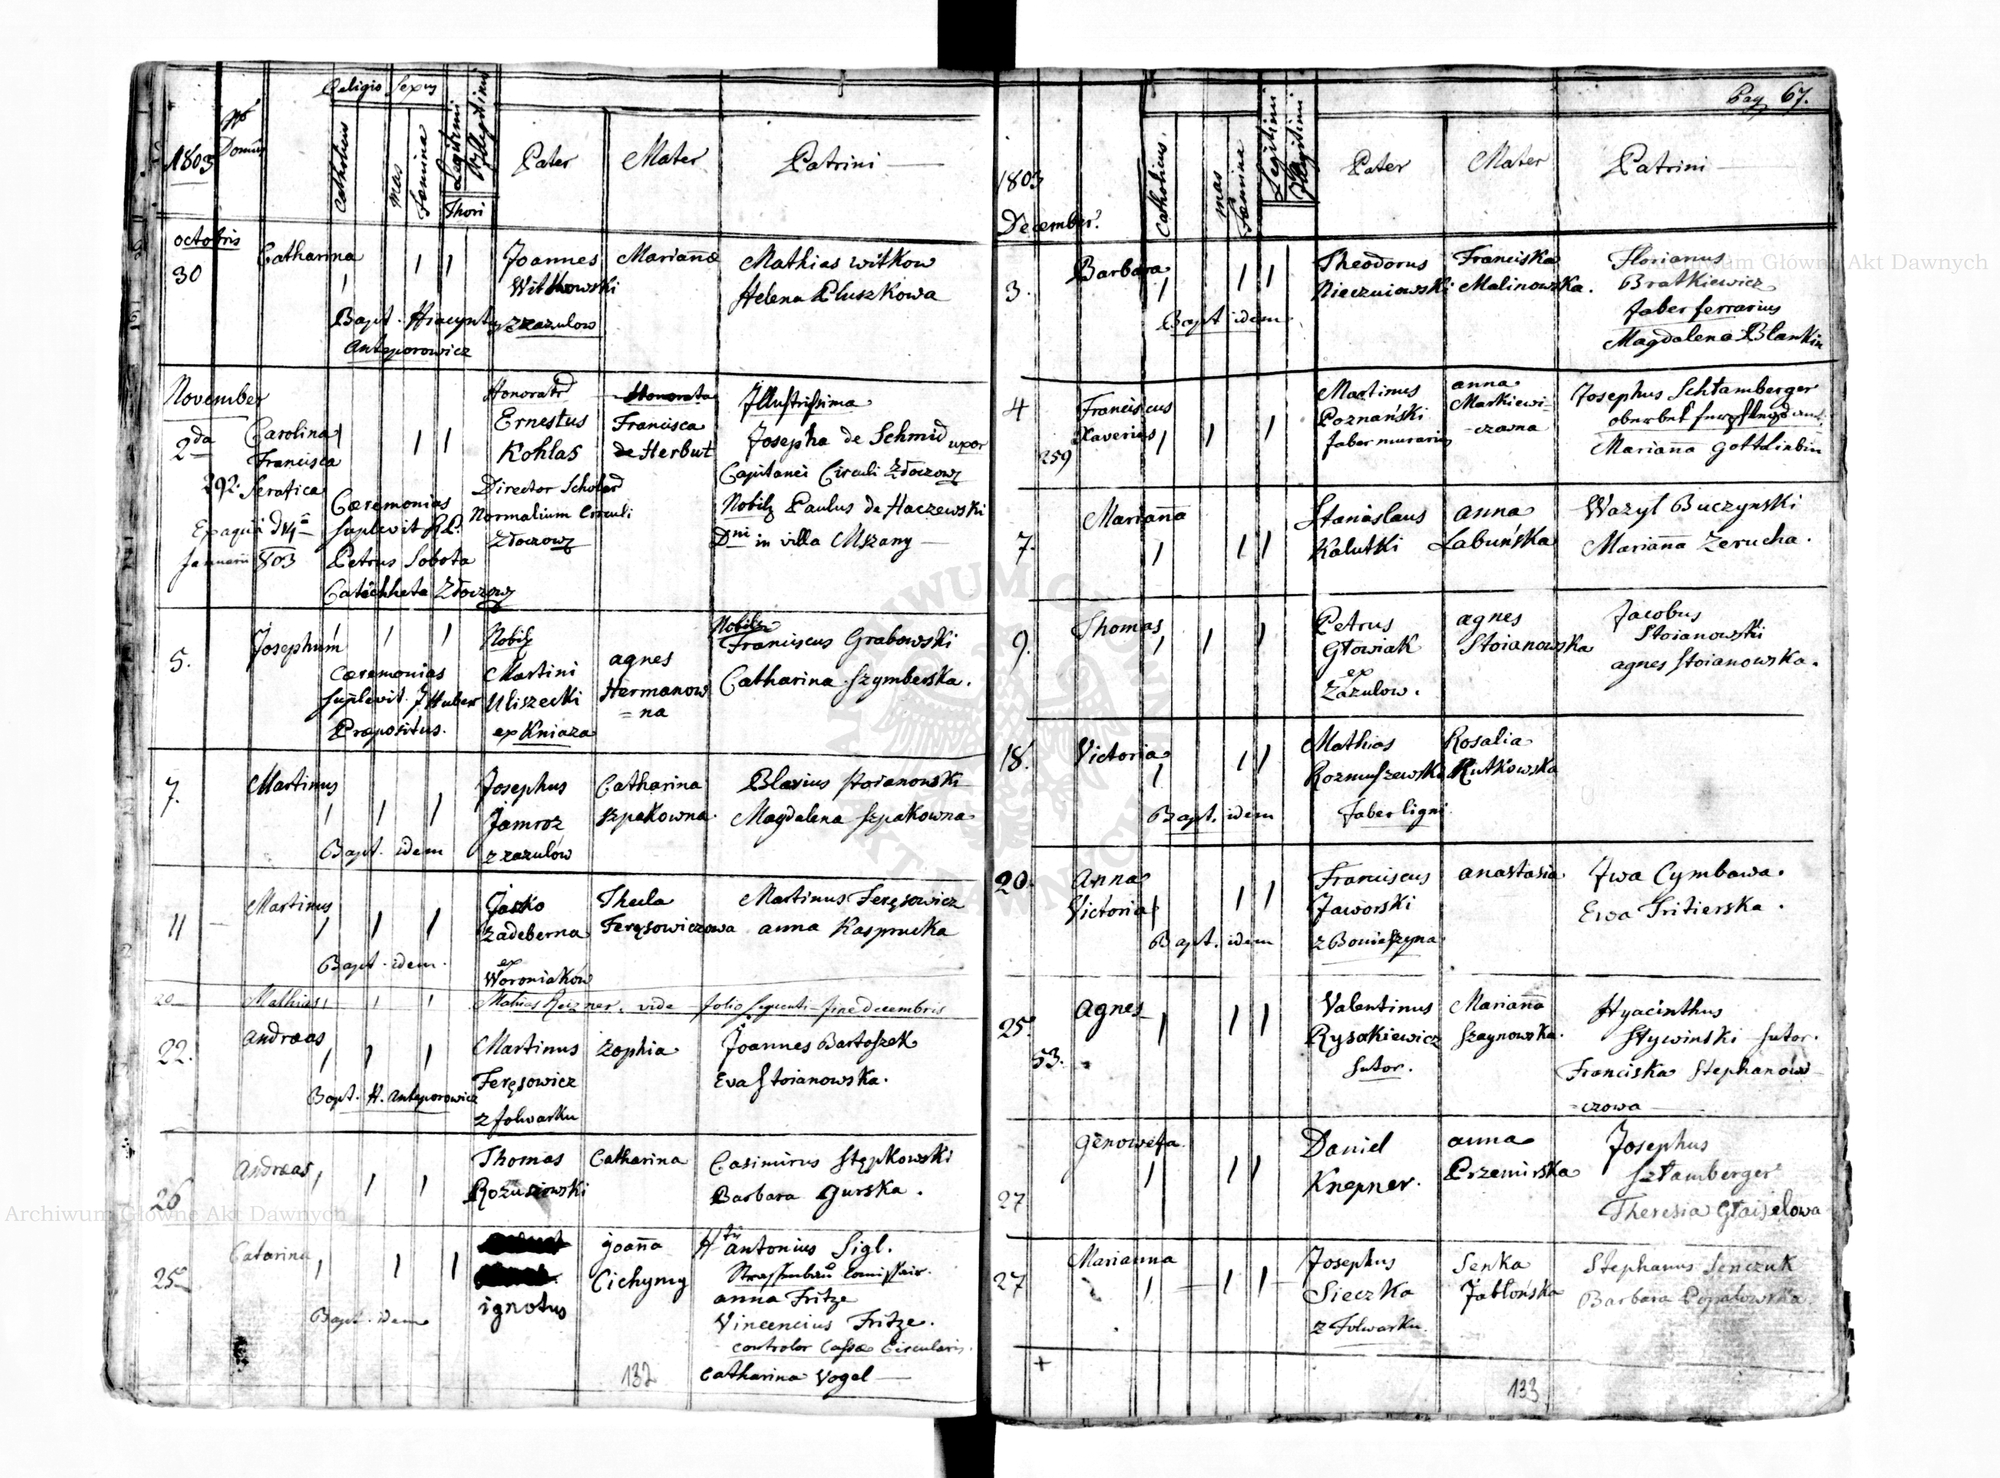 Religio Sexus
1803
No Domus
Catholicus
mas
Femina
Legitimi
Illegitimi
Thori
Pater
Mater
Patrini
octobris
30
Catharina
Joannes
Witkowski
z zazulow
Marianna
Mathias Witkow
Helena Pluszkowa
Bapt. Hiacyntus
Anteporowicz
November
2da
Carolina
Francisca
292. Serafica
Ex aqua d 14a
Januarii 803
Caeremonias
suplevit R.D.
Petrus Sobota
Catechheta Złoczow
Honorat
Ernestus
Kohlas
Director Scholar
Normalium Circuli
Złoczow
Honorata
Francisca
de Herbut
Illustrissima
Josepha de Schmid uxor
Capitanei Circuli Złoczow
Nobilis Paulus de Haczewski
Dni in villa Mszany
5.
Josephum
Caeremonias
suplevit J Huber
Praepositus.
Nobilis
Martini
Uliszecki
ex Kniaza
agnes
Hermanow
=na
Nobilis
Franciscus Grabowski
Catharina Szymberska.
7.
Martinus
Bapt. idem
Josephus
Jamroz
z zazulow
Catharina
Szpakowna.
Blasius Stoianowski
Magdalena Szpakowna
11
Martinus
Bapt. idem.
Jasko
Zadeberna
ex
Woroniakow
Thecla
Feręsowiczowa
Martinus Feręsowicz
anna Kasprucka
20
Mathias
Mathias Reizner. vide folio sequenti fine decembris
22.
andreas
Bapt. H. Anteporowicz
Martinus
Feręsowicz
z folwarku
Zophia
Joannes Bartoszek
Eva Stoianowska.
26
andreas
Thomas
Catharina
Casimirus Stępkowski
Barbara Gurska.
25
Catarina
Bapt. idem
ignotus
joanna
Cichymy
antonius Sigl.
Strassenbau Comissair.
anna Fritze
Vincencius Fritze.
controlor Cassae Circularis.
catharina Vogel
132
Pag 67.
1803
December.
Catholicus.
mas
Femina
Legitimi
Illegitimi
Pater
Mater
Patrini
3.
Barbara
Bapt idem
Theodorus
Nieczuiowski
Franciska
Malinowska.
Florianus
Bratkiewicz
faber ferrarius
Magdalena Blankin
4
259
Franciscus
Xaverius
Martinus
Poznański
faber murarius
anna
Markiewi-
-czowna
Josephus Schtamberger
Marianna Gottliebin
7.
Marianna
Stanislaus
Kalutki
anna
Łabuńska
Wazyl Buczynski
Marianna Zerucha.
9.
Thomas
Petrus
Głowiak
ex
Zazulow.
agnes
Stoianowska
Jacobus
Stoianowski
agnes Stoianowska.
18.
Victoria
Bapt. idem
Mathias
Rozmuszewski
Faber ligni
Rosalia
Rutkowska
20.
Anna
Victoria
Bapt. idem
Franciscus
Jaworski
z Boniszyna
anastasia
Iwa Cymbawa.
Ewa Tritierska.
25.
53.
Agnes
Valentinus
Rysakiewicz
Sutor.
Marianna
Szaynowska.
Hyacinthus
Stywinski Sutor.
Franciska Stephanow
-czowa
27
Genowefa
Daniel
Knepner.
anna
Przemirska
Josephus
Sztamberger
Theresia Głaiselowa
27
Marianna
Josephus
Sieczka
z Folwarku.
Senka
Jabłońska
Stephanus Senczuk
Barbara Popałowska
133